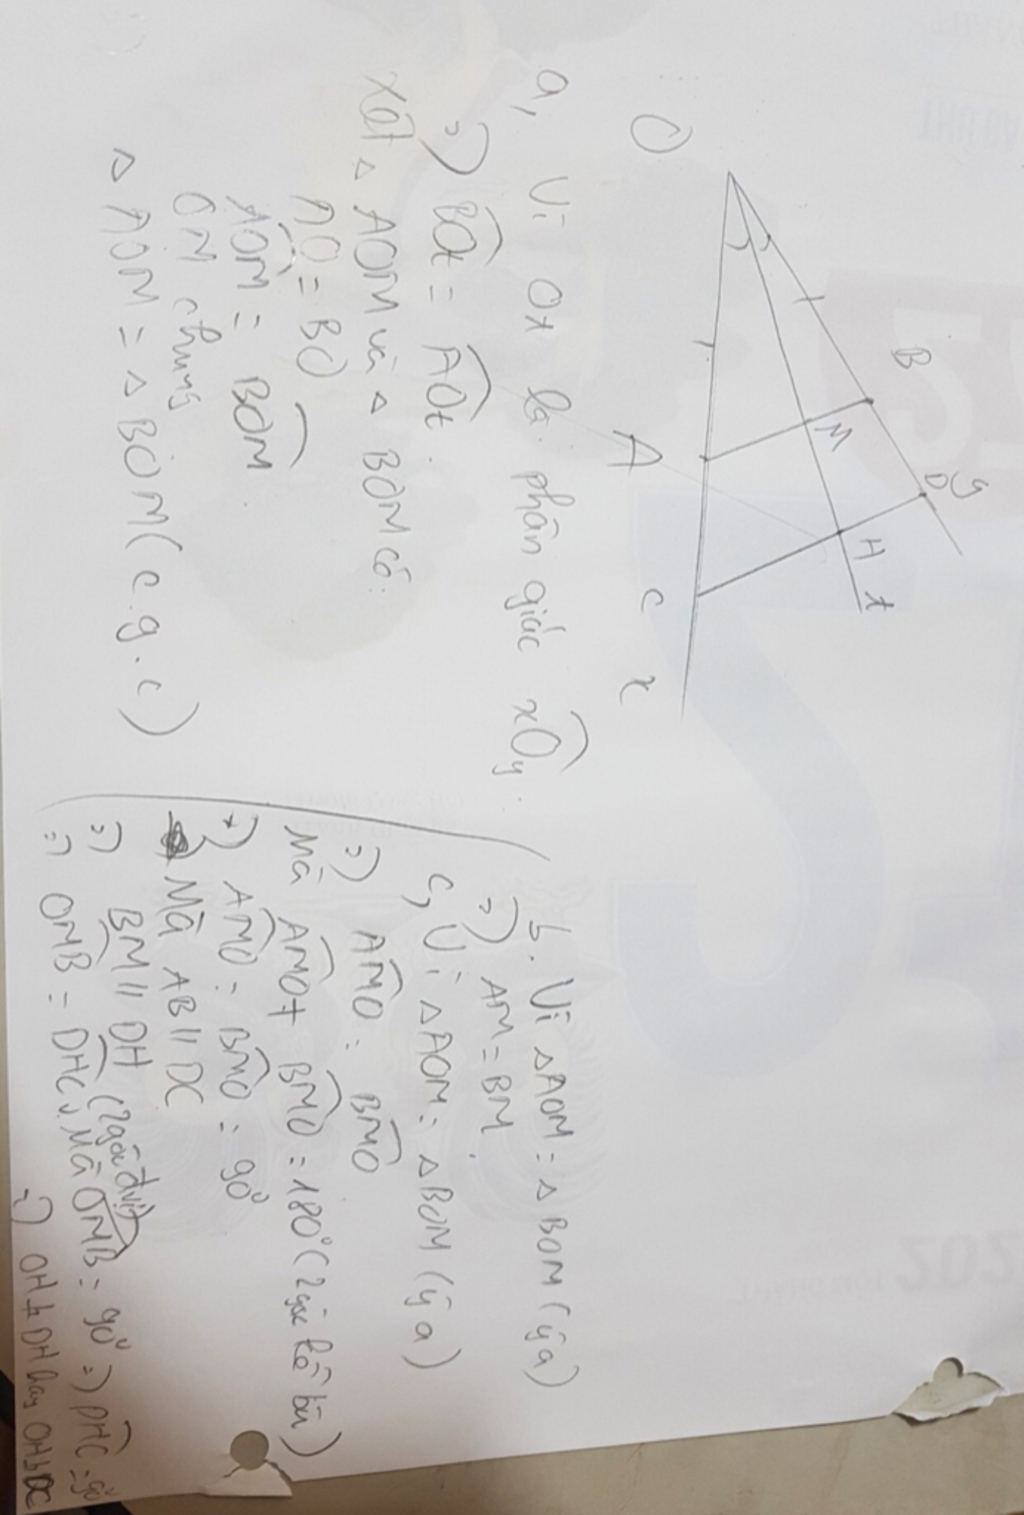 O
B
D
y
M
H
t
A
C
x
a, Vì Ot là phân giác xOy.
=) BOt = AOt.
Xét △ AOM và △ BOM có:
AO = BO
AOM = BOM.
OM chung
△ AOM = △ BOM (c.g.c)
b. Vì △AOM = △ BOM (ý a)
=) AM = BM.
c, Vì △AOM = △ BOM (ý a)
=) AMO = BMO
Mà AMO + BMO = 180° (2 góc kề bù)
=) AMO = BMO = 90°
Mà AB // DC
=) BM // DH
=) OMB = DHC (2 góc đvị). Mà OMB = 90° =) DHC = 90
=) OH ⊥ DH hay OH ⊥ DC